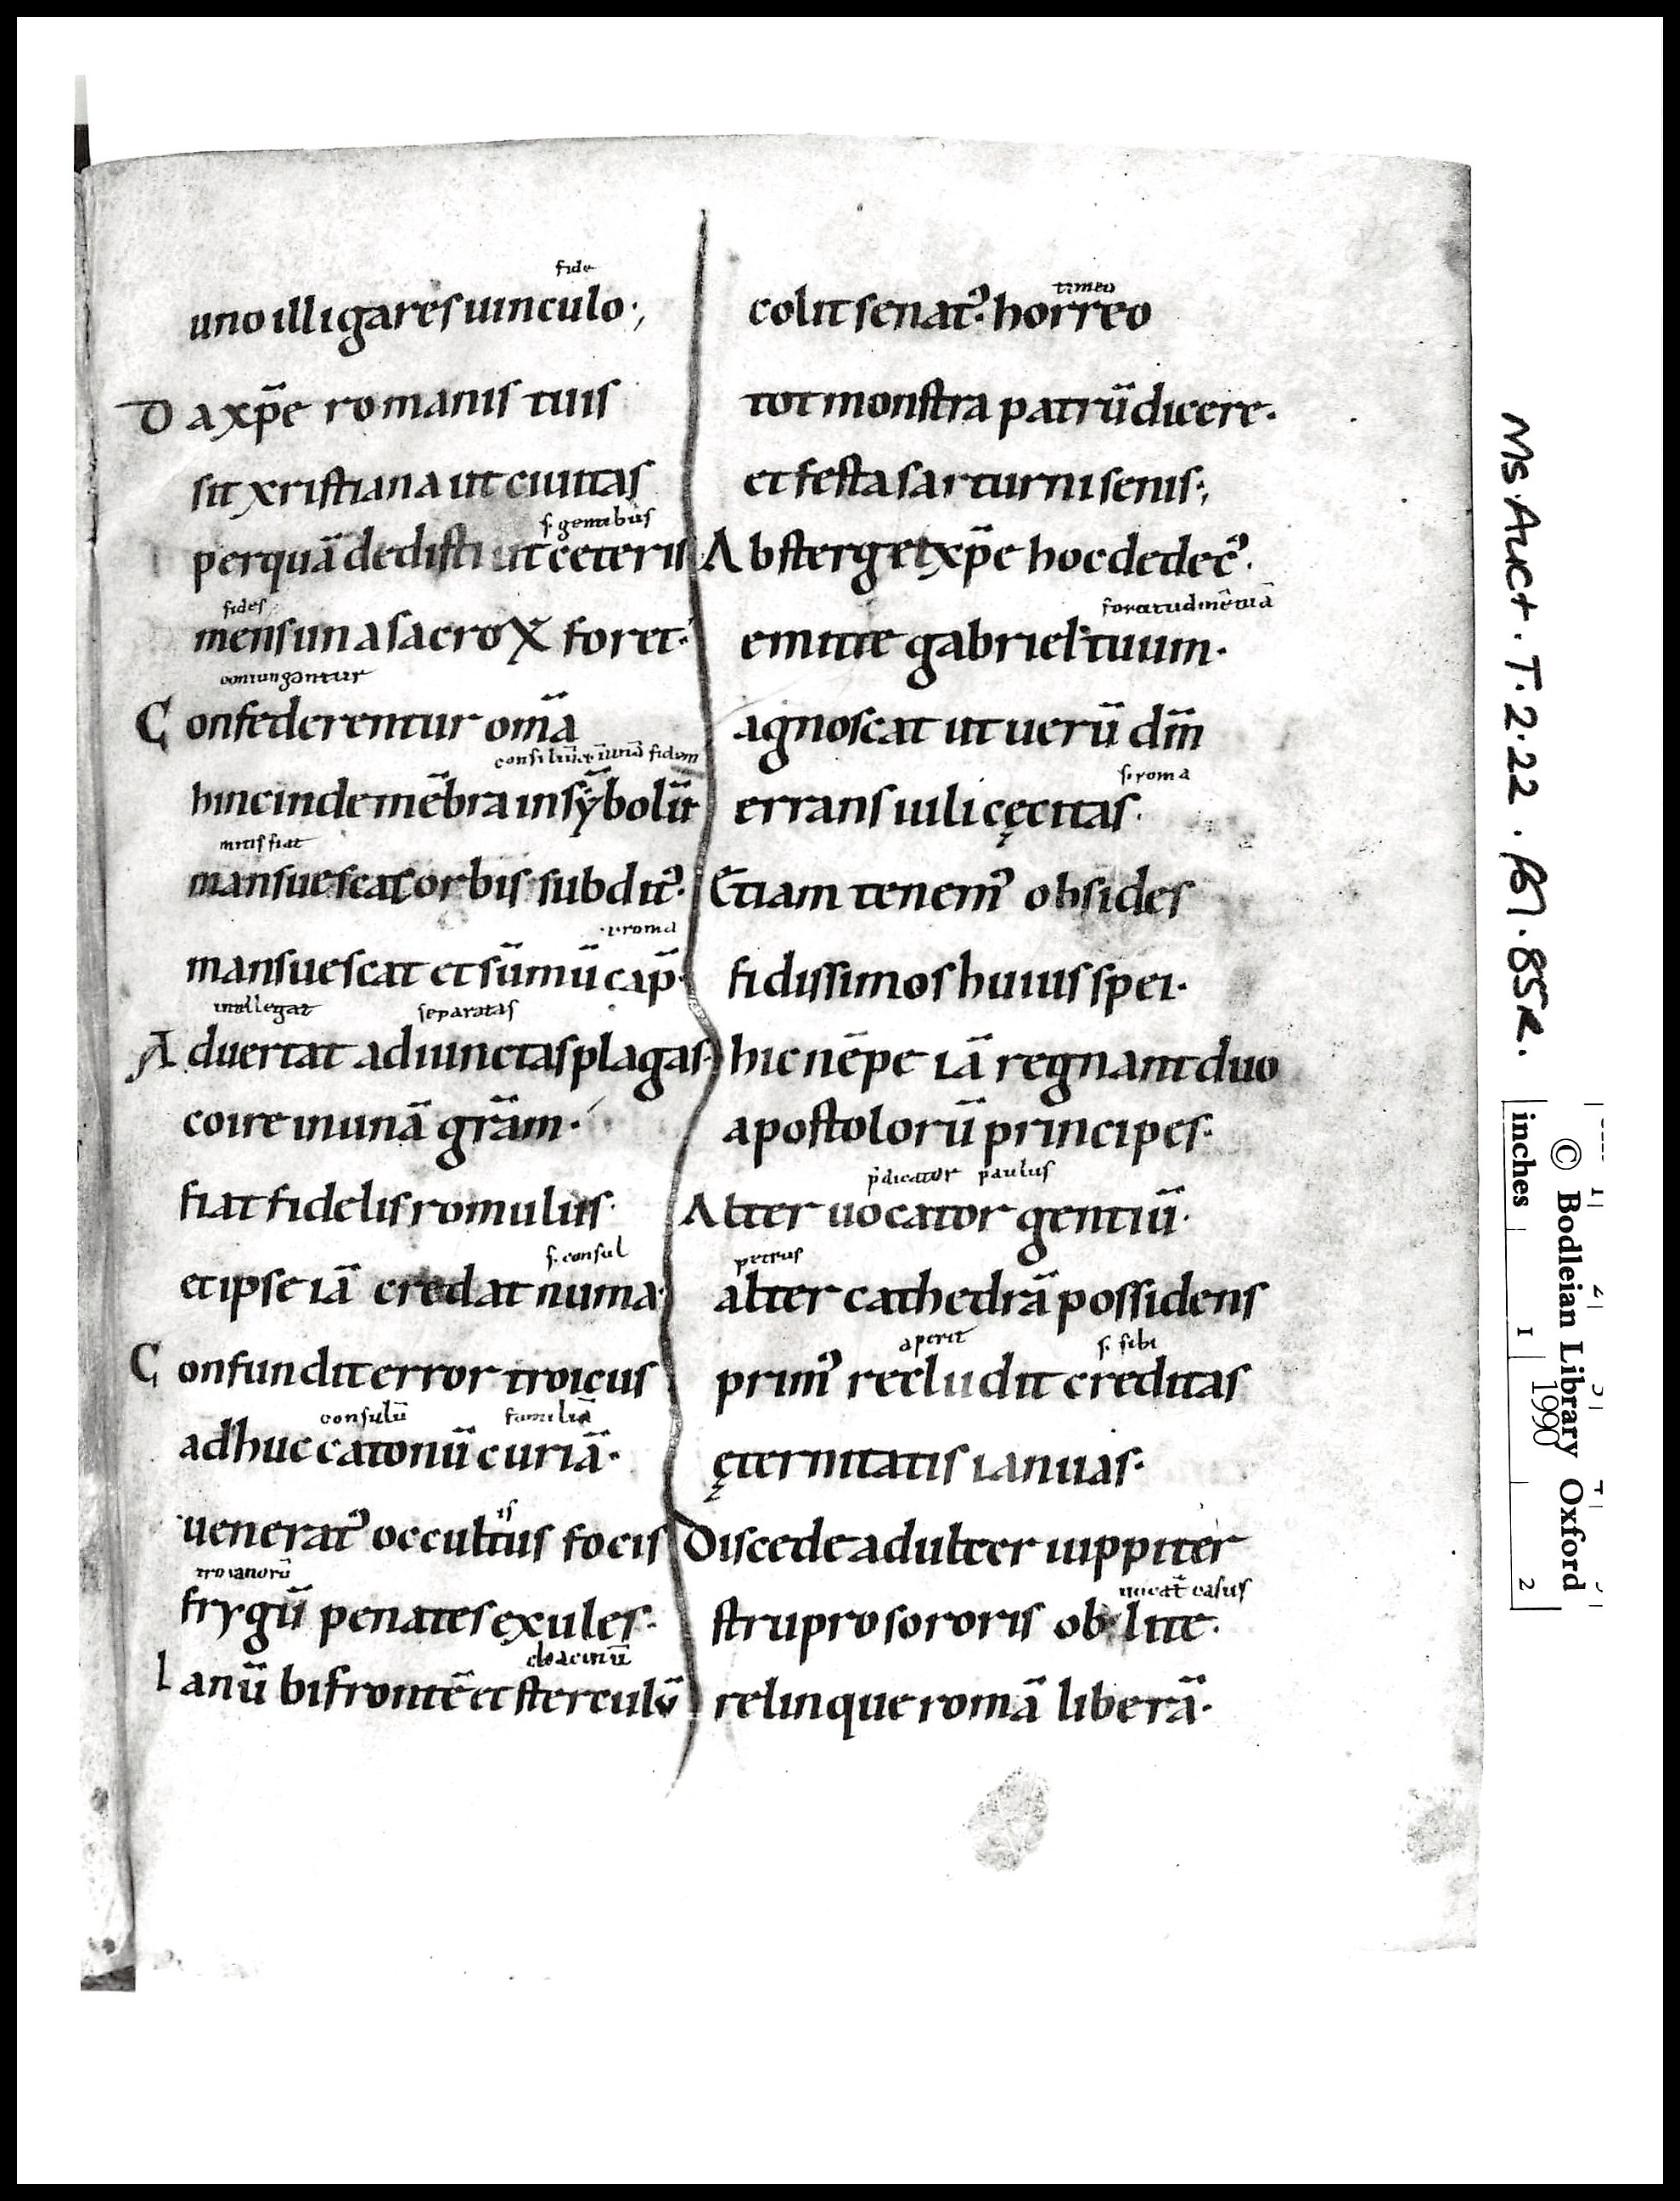 fide
uno illigares uinculo·,
Da xp̄e romanis tuis
sit xristiana ut ciuitas
s. gentibus
per quā dedisti ut ceteris
fides
mens una sacroX foret·
coniungantur
Confederentur om̄a
hinc inde mēbra in sȳbolū
mitis fiat
mansuescat orbis subditꝰ·
roma
mansuescat et sūmū cap̄·
intellegat separatas
Aduertat adiunctas plagas·
coire in unā grām·
fiat fidelis romulus·
s. consul
et ipse iā credat numa·
Confundit error troicus
consulū familiā
adhuc catonū curiā·
is
ueneratꝰ occultus focis
troianorū
frygū penates exules·
cloacinū
Ianū bifrontē et sterculū
timeo
colit senatꝰ· horreo
tot monstra patrū dicere·
et festa sarturni senis·,
Absterge txp̄e hoc dedecꝰ·
emitte gabriel tuum·
agnoscat ut uerū dm̄
s. roma
errans iuli cęcitas·
Etiam tenemꝰ obsides
fidissimos huius spei·
hic nēpe iā regnant duo
apostolorū principes·
p̄dicator paulus
Alter uocator gentiū·
petrus
alter cathedrā possidens
aperit s. sibi
primꝰ recludit creditas
ęternitatis ianuas·
Discede adulter iuppiter
uocat̄ casus
strupro sororis oblite·
relinque romā liberā·
Ms. Auct. T. 2. 22. fol. 85R.
© Bodleian Library Oxford
1990
inches 1 2